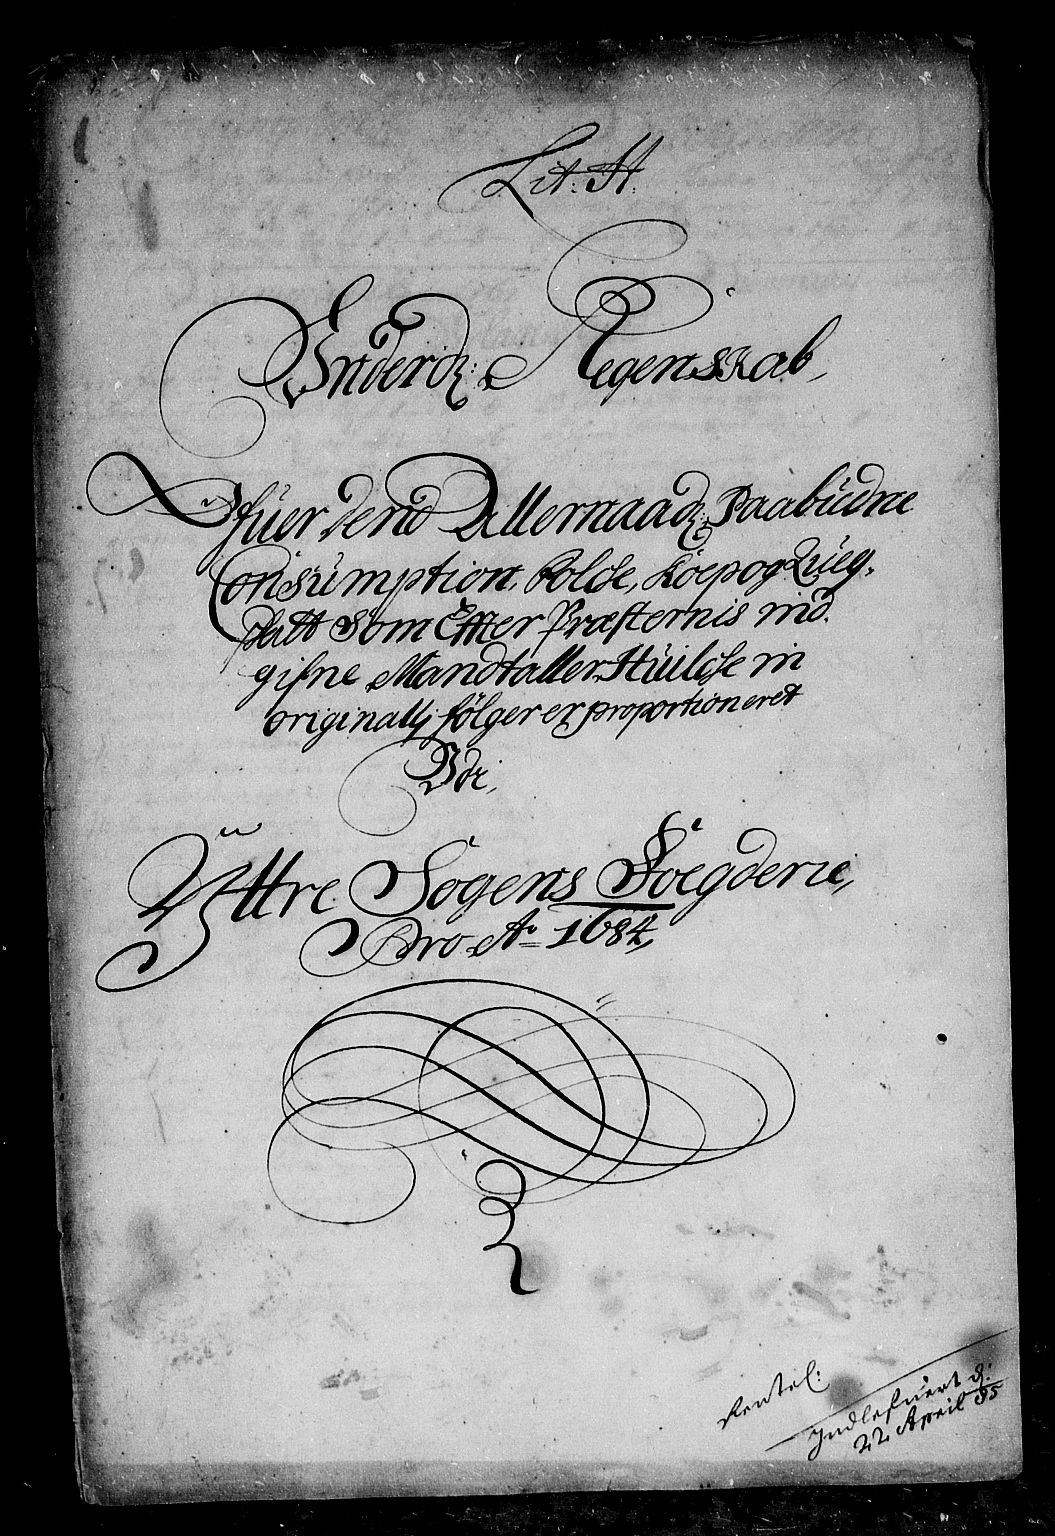 Lit: H:
Underd: Regenskab,
Ofuer dend Allernaad: Paabüdne
Consümption, Folche, Köepog Qüeg.
skatt Som Effter Præsternis ind.
gifne Mandtaller, Hüilche in
originalij følger er proportioneret
Vdi,
Ÿttre Sogens Foegderie,
Pro Ao 1684,
Rentel:
Indlefuert d:
22 April 85